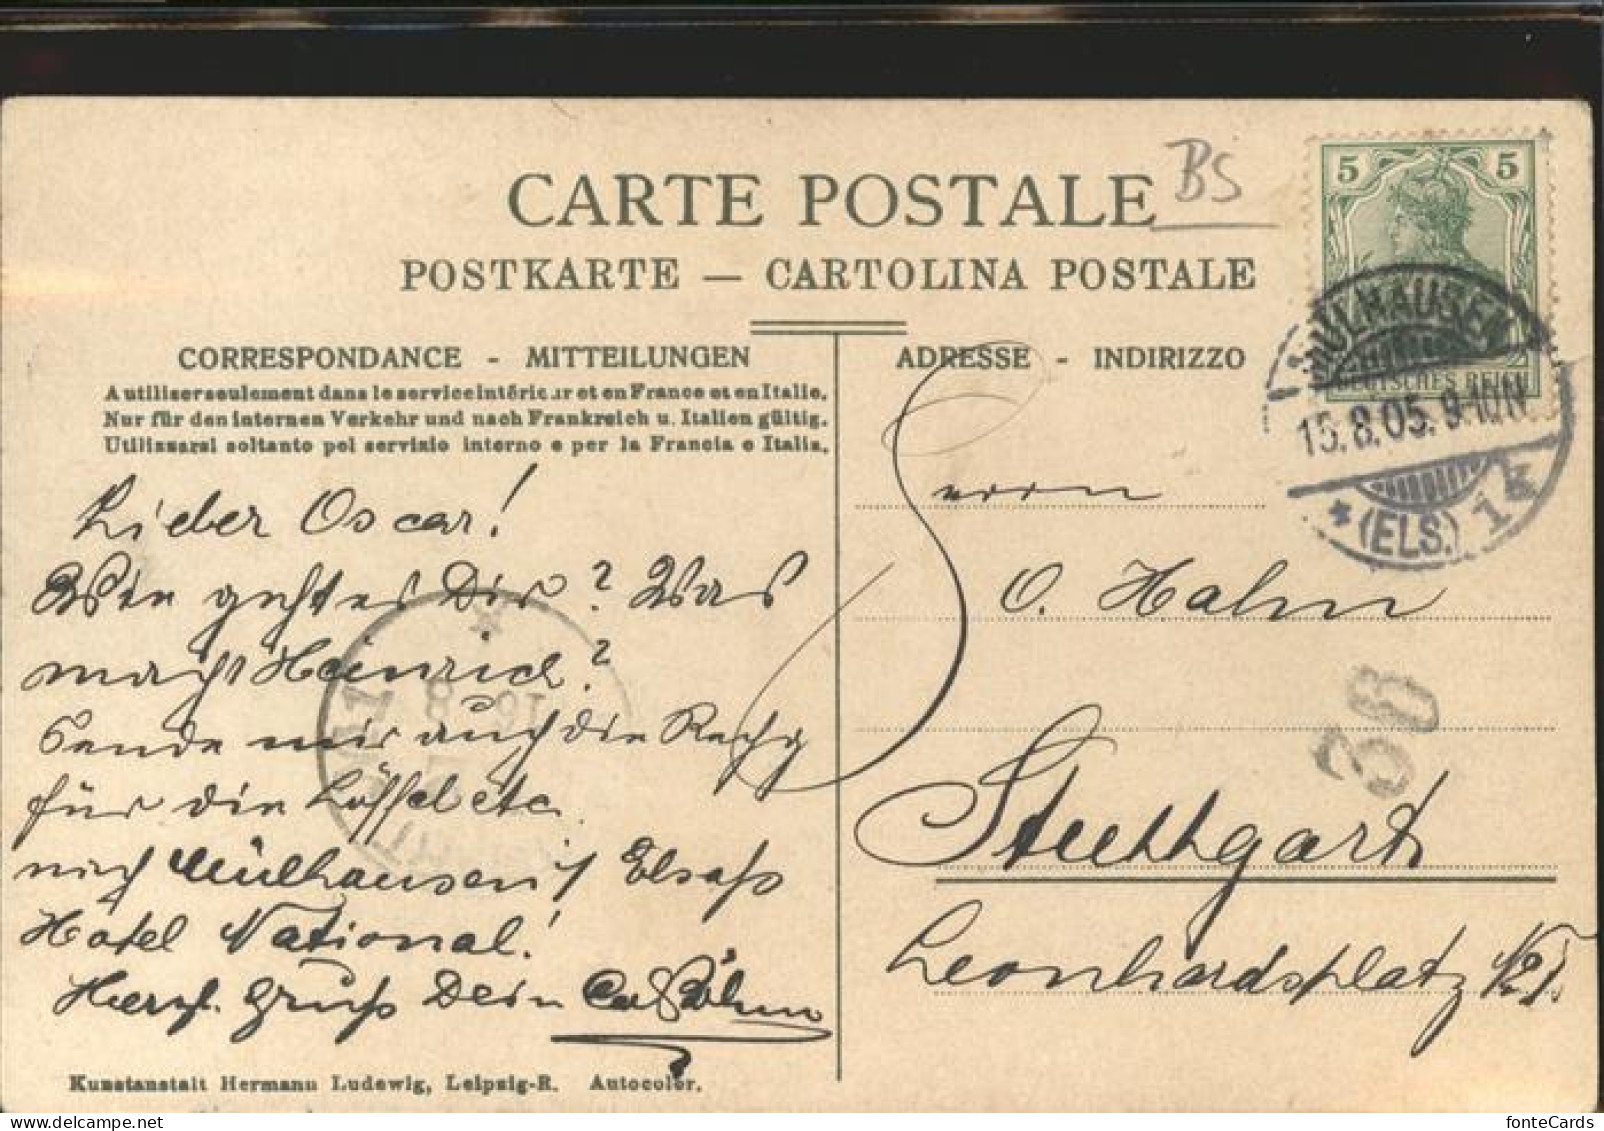 CARTE POSTALE
BS
POSTKARTE — CARTOLINA POSTALE
CORRESPONDANCE - MITTEILUNGEN
A utiliser seulement dans le service intérieur et en France et en Italie.
Nur für den internen Verkehr und nach Frankreich u. Italien gültig.
Utilizzarsi soltanto pel servizio interno e per la Francia e Italia.
Lieber Oscar!
Wie geht es Dir? Was
macht Heinrich?
Sende mir auch die Rechg
für die Löffel etc.
nach Mülhausen i/ Elsass
Hotel National!
Herzl. Gruss Dein
Kunstanstalt Hermann Ludewig, Leipzig-R. Autocolor.
ADRESSE - INDIRIZZO
5 5
DEUTSCHES REICH
MÜLHAUSEN
15.8.05. 9-10N
* (ELS.) 1k
Herrn
O. Hahn
36
Stuttgart
Leonhardsplatz No
fonteCards